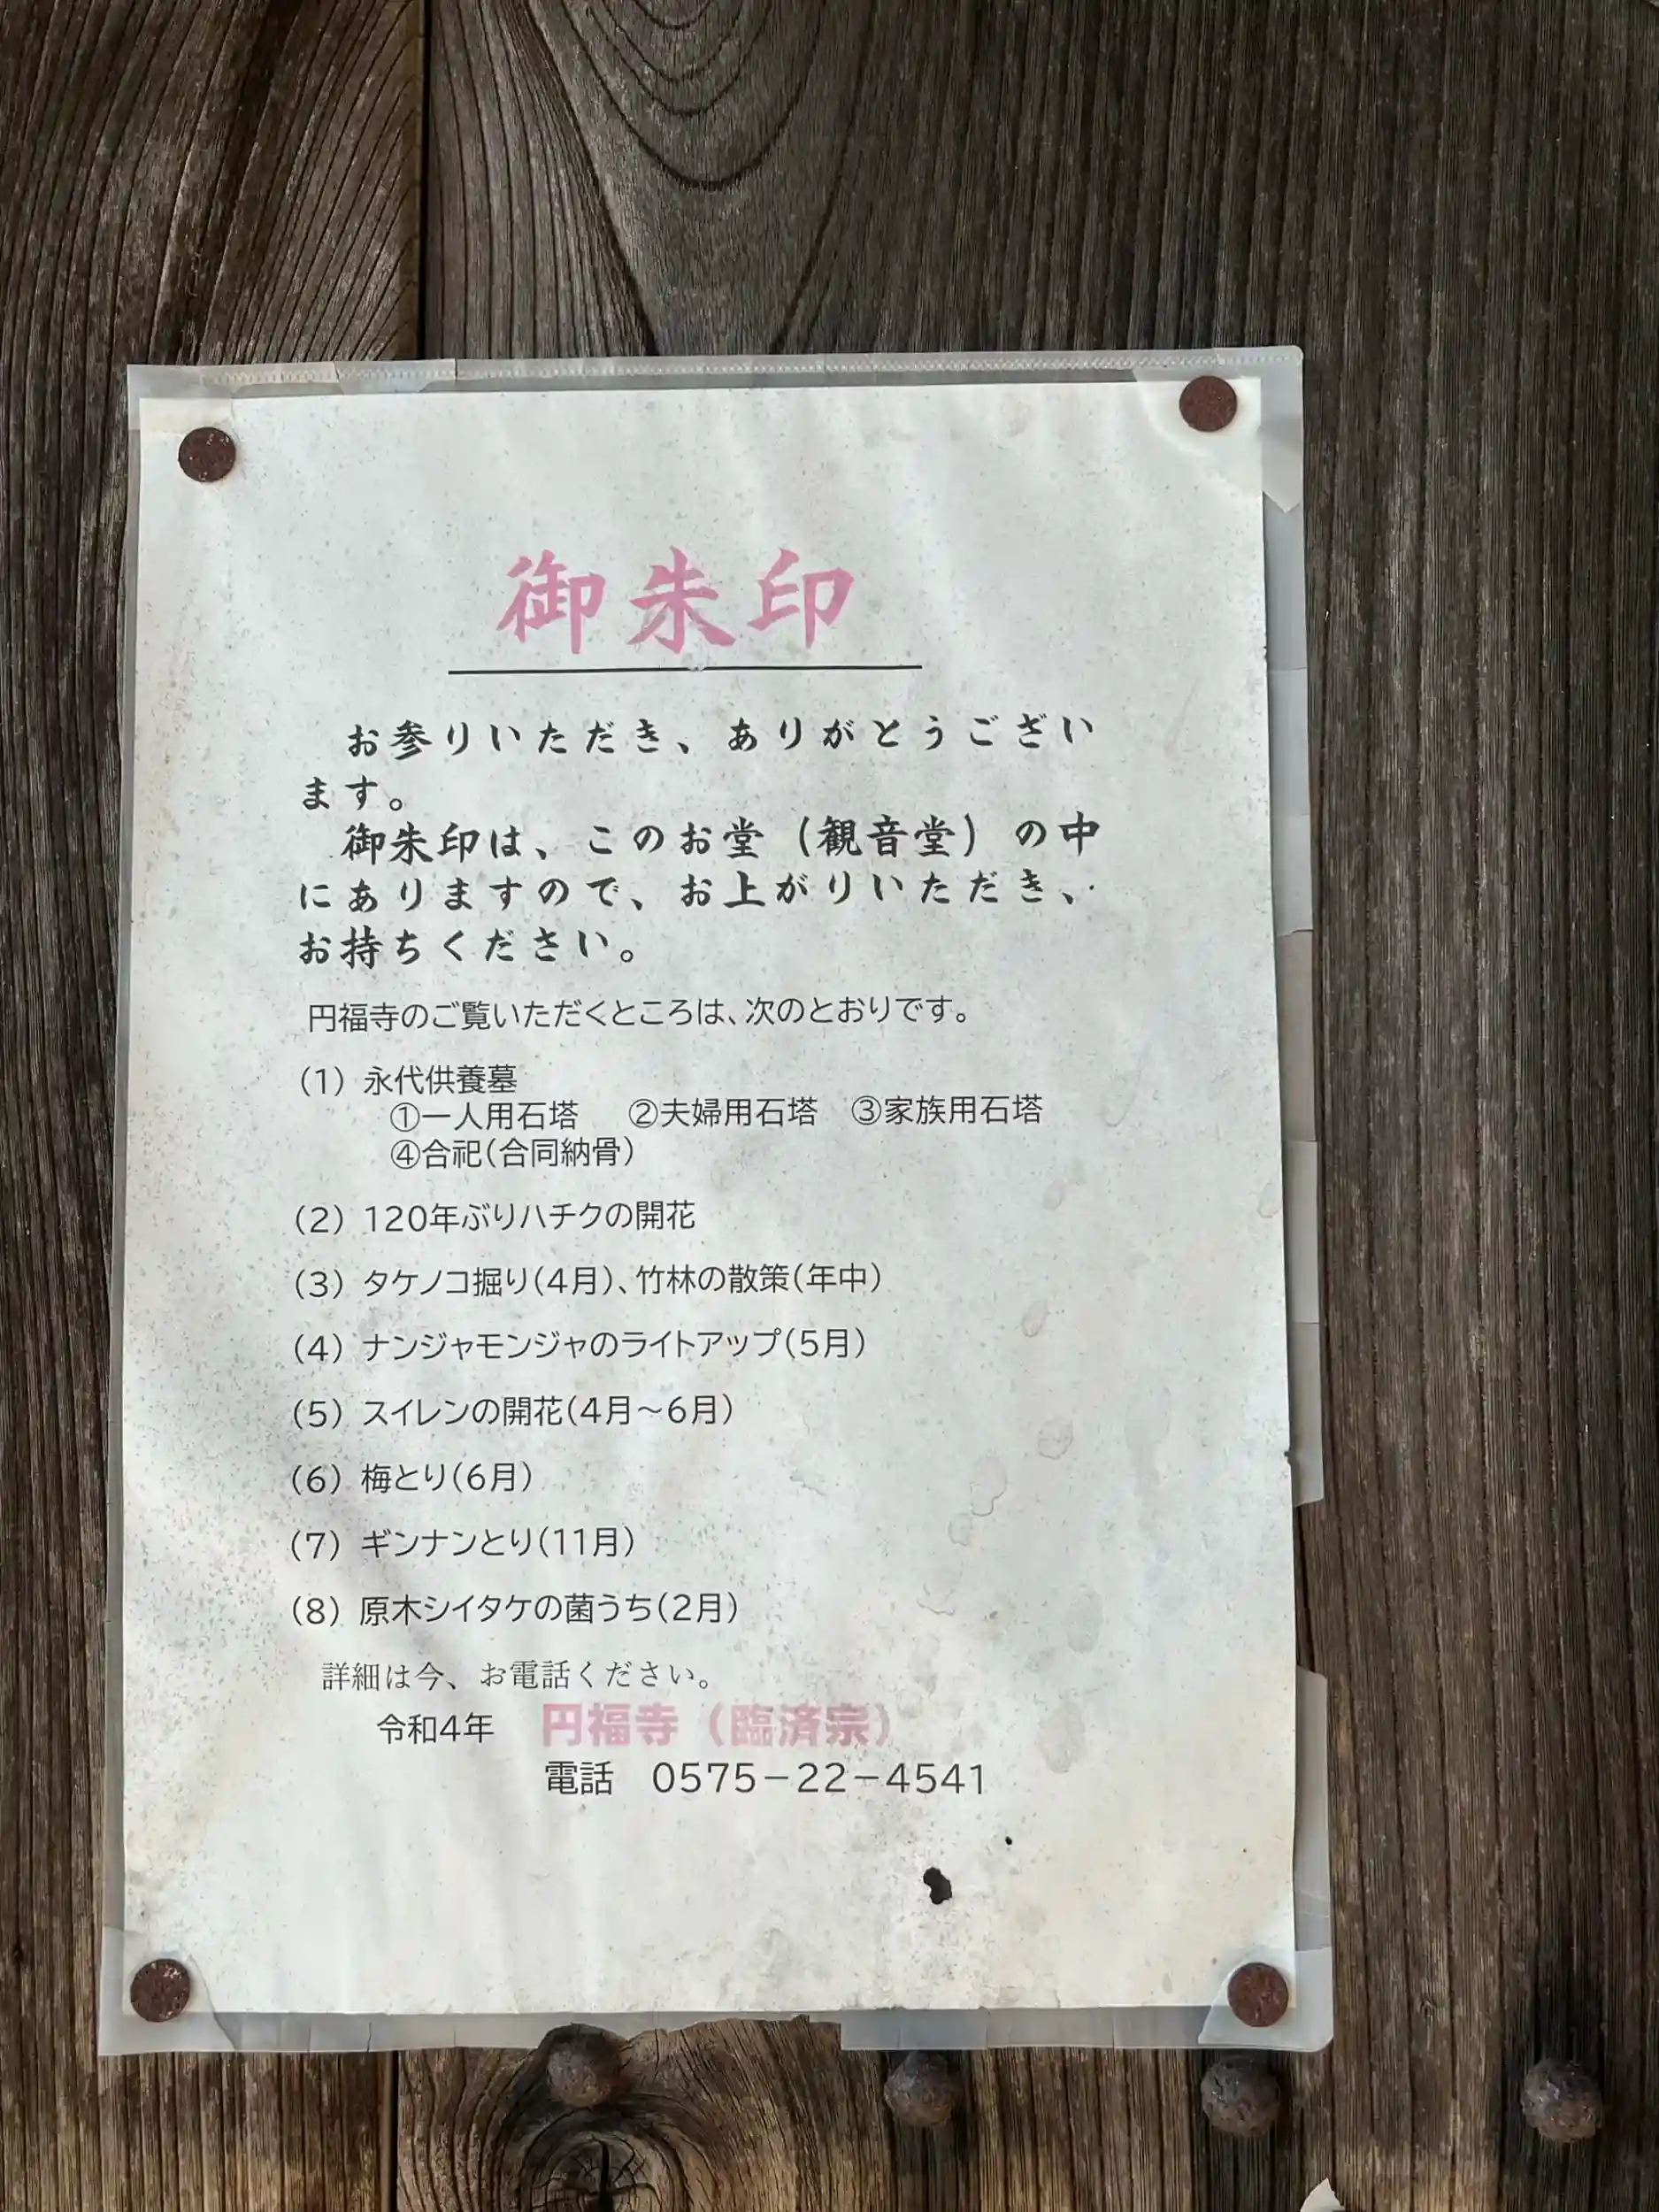 御朱印
お参りいただき、ありがとうござい
ます。
御朱印は、このお堂（観音堂）の中
にありますので、お上がりいただき、
お持ちください。
円福寺のご覧いただくところは、次のとおりです。
(1) 永代供養墓
①一人用石塔 ②夫婦用石塔 ③家族用石塔
④合祀(合同納骨)
(2) 120年ぶりハチクの開花
(3) タケノコ掘り(4月)、竹林の散策(年中)
(4) ナンジャモンジャのライトアップ(5月)
(5) スイレンの開花(4月～6月)
(6) 梅とり(6月)
(7) ギンナンとり(11月)
(8) 原木シイタケの菌うち(2月)
詳細は今、お電話ください。
令和4年 円福寺（臨済宗）
電話 0575－22－4541